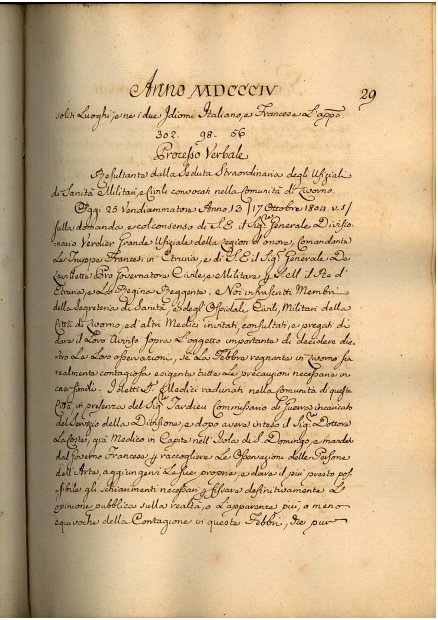 Anno MDCCCIV
29
soliti Luoghi, e ne i due Idiomi Italiano, e Francese L'appo
302. 98. 56
Processo Verbale
Resultante dalla Seduta Straordinaria degli Ufiziali
di Sanità e Militari, e Civili convocati nella Comunità di Livorno.
Oggi 25 Vendiammatore Anno 13 / 17 Ottobre 1804 v. s /
sulla domanda, e col consenso di S. E. il Sigre Generale Divisio
nario Verdier Grande Ufiziale della region d'onore, Comandante
Le Truppe Francesi in Etruria, e di S. E. il Sigre Generale De
Lavillette Pro Governatore Civile, e Militare p S. M. il Re d'
Etruria, e La Regina Reggente. Noi infrascritti Membri
della Segreteria di Sanità, e degl'Ospidali Civili, Militari della
Città di Livorno, ed altri Medici invitati, consultati, e pregati di
dare il Loro Avviso sopra L'oggetto importante di decidere die
tro Le Loro osservazioni, se La Febbre regnante in Livorno sia
realmente contagiosa e esigente tutte Le precauzioni necessarie in
casi simili. I detti Sri Medici radunati nella Comunità di questa
Città in presenza del Sigre Tardieu Commissario di Guerra incaricato
del Servizio della Divisione, e dopo avere inteso il Sigre Dottore
LaCoste, già Medico in Capite nell'Isola di S. Domingo, e mandato
dal Governo Francese p raccogliere Le Osservazioni delle Persone
dell'Arte, aggiungervi Le sue proprie, e dare il più presto pos
sibile gli schiarimenti necessari p fissare definitivamente L'
opinione pubblica sulla realtà, o L'apparenze più, o meno
equivoche della Contagione in queste Febbri, che pur